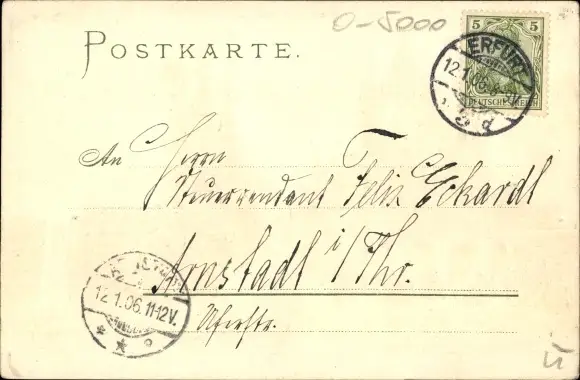 0-5000
POSTKARTE.
5 5
DEUTSCHES REICH
ERFURT
12.1.06. 8-9V.
d
An Herrn
Steuerrendant Felix Eckardt
Arnstadt i/Thr.
Uferstr.
12.1.06.11-12V.